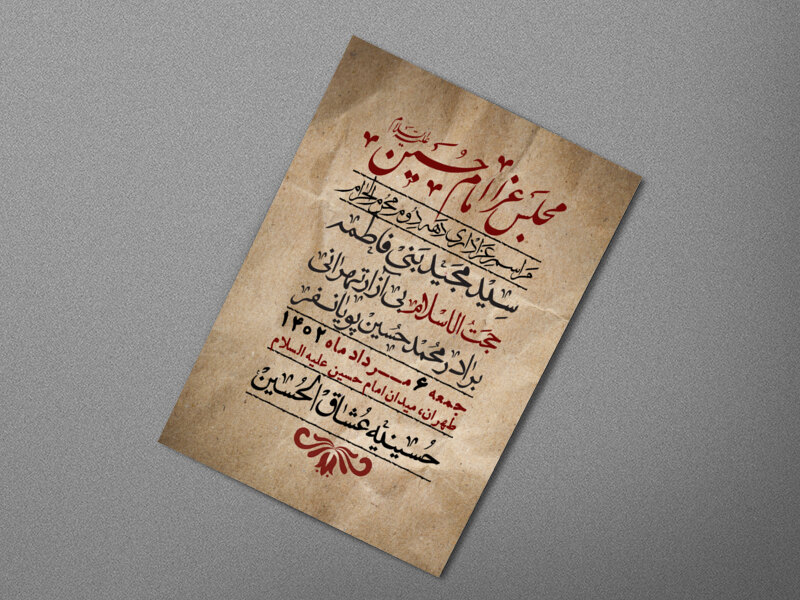 علیه السلام
مجلس عزا امام حسین
مراسم عزاداری دهه دوم محرم الحرام
سید مجید بنی فاطمه
حجت الاسلام بی آزار تهرانی
برادر محمد حسین پویانفر
جمعه ۶ مرداد ماه ۱۴۰۲
طهران، میدان امام حسین علیه السلام
حسینیه عشاق الحسین